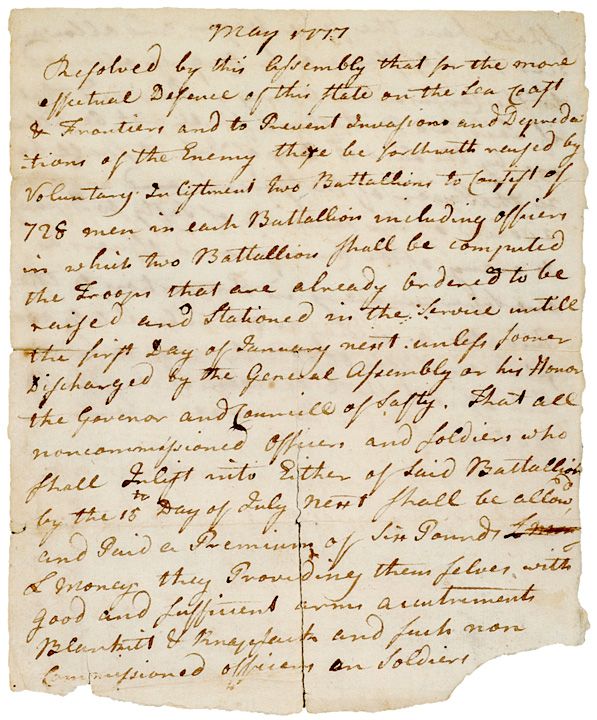 May 1777
Resolved by this Assembly that for the more
effectual Defence of this State on the Sea Coast
& Frontiers and to Prevent Invasions and Depreda-
:tions of the Enemy there be forthwith raised by
Voluntary Inlistment two Battallions to Consist of
728 men in each Battallion including officers
in which two Battallions shall be computed
the Troops that are already ordered to be
raised and Stationed in the Service untill
the first Day of January next unless sooner
Discharged by the General Assembly or his Honor
the Govenor and Councill of Safty. That all
noncommissioned officers and soldiers who
shall Inlist into Either of Said Battallion
by the 15th Day of July next shall be allowd
and Paid a Premium of Six Pounds
L money they Providing themselves with
good and sufficient arms acuntrements
Blankitt & Knapsack and such non
Commissioned officers or Soldiers